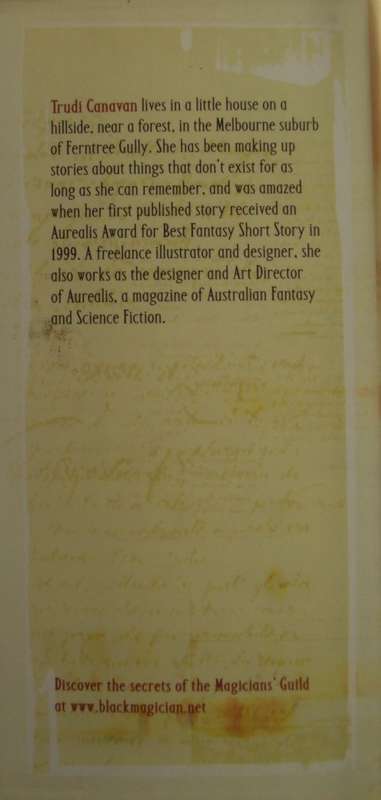 Trudi Canavan lives in a little house on a
hillside, near a forest, in the Melbourne suburb
of Ferntree Gully. She has been making up
stories about things that don't exist for as
long as she can remember, and was amazed
when her first published story received an
Aurealis Award for Best Fantasy Short Story in
1999. A freelance illustrator and designer, she
also works as the designer and Art Director
of Aurealis, a magazine of Australian Fantasy
and Science Fiction.
Discover the secrets of the Magicians' Guild
at www.blackmagician.net